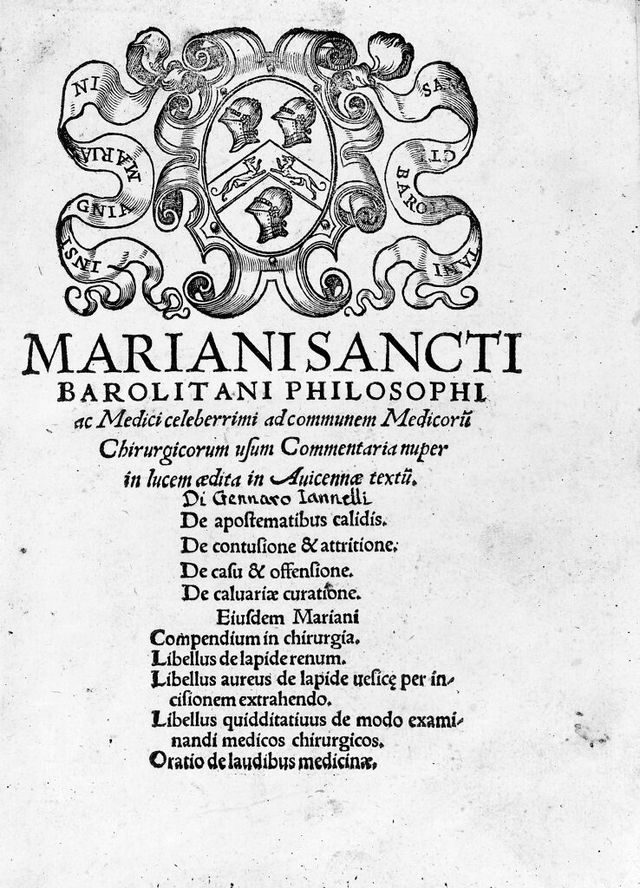 INSI
GNIA
MARIA
NI
SAN
CTI
BAROLI
TANI
MARIANI SANCTI
BAROLITANI PHILOSOPHI
ac Medici celeberrimi ad communem Medicorũ
Chirurgicorum uſum Commentaria nuper
in lucem ædita in Auicennæ textũ.
Di Gennaro Iannelli
De apoſtematibus calidis.
De contuſione & attritione.
De caſu & offenſione.
De caluariæ curatione.
Eiuſdem Mariani
Compendium in chirurgia.
Libellus de lapide renum.
Libellus aureus de lapide ueſicę per in-
ciſionem extrahendo.
Libellus quidditatiuus de modo exami-
nandi medicos chirurgicos.
Oratio de laudibus medicinæ.